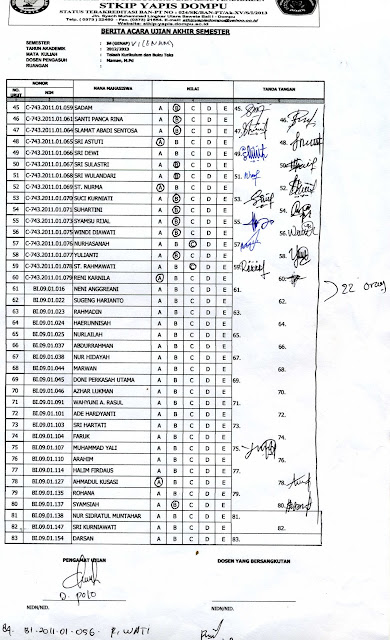 STKIP YAPIS DOMPU
STATUS TERAKREDITASI BAN-PT NO :
BERITA ACARA UJIAN AKHIR SEMESTER
SEMESTER : IV (GENAP)
TAHUN AKADEMIK : 2012/2013
MATA KULIAH : Telaah Kurikulum dan Buku Teks
DOSEN PENGASUH : Naman, M.Pd
RUANGAN :
NOMOR NAMA MAHASISWA NILAI TANDA TANGAN
NO. URUT NIM
45 C-743.2011.01.059 SADAM A B C D E 45.
46 C-743.2011.01.061 SANTI PANCA RINA A B C D E 46.
47 C-743.2011.01.064 SLAMAT ABADI SENTOSA A B C D E 47.
48 C-743.2011.01.065 SRI ASTUTI A B C D E 48.
49 C-743.2011.01.066 SRI DEWI A B C D E 49.
50 C-743.2011.01.067 SRI SULASTRI A B C D E 50.
51 C-743.2011.01.068 SRI WULANDARI A B C D E 51.
52 C-743.2011.01.069 ST. NURMA A B C D E 52.
53 C-743.2011.01.070 SUCI KURNIATI A B C D E 53.
54 C-743.2011.01.071 SUHARTINI A B C D E 54.
55 C-743.2011.01.073 SYAMSU RIJAL A B C D E 55.
56 C-743.2011.01.075 WINDI DIAWATI A B C D E 56.
57 C-743.2011.01.076 NURHASANAH A B C D E 57.
58 C-743.2011.01.077 YULIANTI A B C D E 58.
59 C-743.2011.01.078 ST. RAHMAWATI A B C D E 59.
60 C-743.2011.01.079 RENI KARNILA A B C D E 60.
61 BI.09.01.016 NENI ANGGRIEANI A B C D E 61.
62 BI.09.01.022 SUGENG HARIANTO A B C D E 62.
63 BI.09.01.023 RAHMADIN A B C D E 63.
64 BI.09.01.024 HAERUNNISAH A B C D E 64.
65 BI.09.01.025 NURLAILAH A B C D E 65.
66 BI.09.01.037 ABDURRAHMAN A B C D E 66.
67 BI.09.01.038 NUR HIDAYAH A B C D E 67.
68 BI.09.01.044 MARWAN A B C D E 68.
69 BI.09.01.045 DONI PERKASAH UTAMA A B C D E 69.
70 BI.09.01.046 AZHAR LUKMAN A B C D E 70.
71 BI.09.01.091 WAHYUNI A. RASUL A B C D E 71.
72 BI.09.01.101 ADE HARDYANTI A B C D E 72.
73 BI.09.01.103 SRI HARTATI A B C D E 73.
74 BI.09.01.104 FARUK A B C D E 74.
75 BI.09.01.107 MUHAMMAD YALI A B C D E 75.
76 BI.09.01.110 ARAHIM A B C D E 76.
77 BI.09.01.114 HALIM FIRDAUS A B C D E 77.
78 BI.09.01.127 AHMADUL KUSASI A B C D E 78.
79 BI.09.01.135 ROHANA A B C D E 79.
80 BI.09.01.137 SYAMSIAH A B C D E 80.
81 BI.09.01.138 NUR SIDRATUL MUNTAHAR A B C D E 81.
82 BI.09.01.147 SRI KURNIAWATI A B C D E 82.
83 BI.09.01.154 DARSAN A B C D E 83.
22 orang
PENGAWAS UJIAN DOSEN YANG BERSANGKUTAN
D. POLO
NIDN/NID. NIDN/NID.
84. BI-2011-01-056 R. WATI